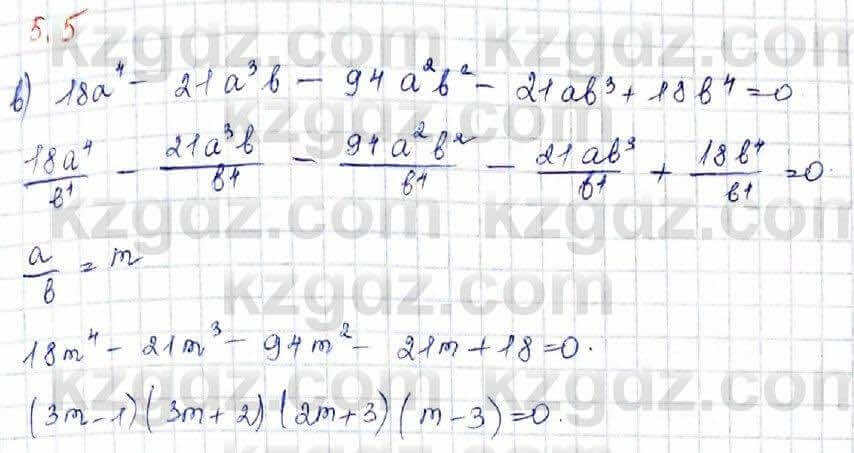 5.5
в) 18a⁴ - 21a³b - 94a²b² - 21ab³ + 18b⁴ = 0
18a⁴/b⁴ - 21a³b/b⁴ - 94a²b²/b⁴ - 21ab³/b⁴ + 18b⁴/b⁴ = 0.
a/b = m
18m⁴ - 21m³ - 94m² - 21m + 18 = 0.
(3m-1)(3m+2)(2m+3)(m-3)=0.
kzgdz.com kzgdz.com
kzgdz.com
kzgdz.com kzgdz.com
kzgdz.com
kzgdz.com kzgdz.com